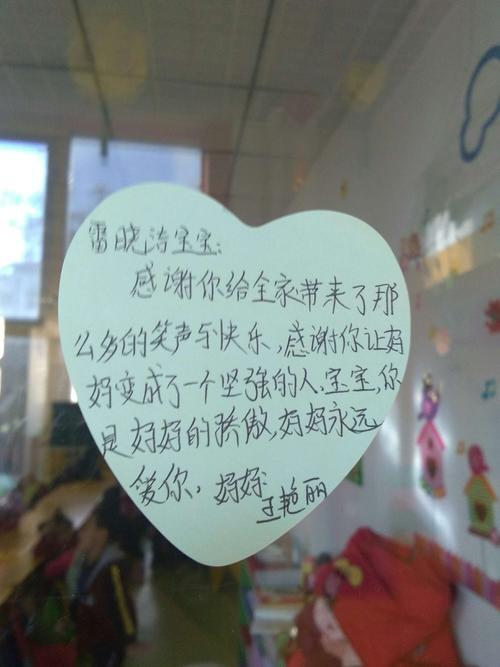 雷晓洁宝宝:
感谢你给全家带来了那
么多的笑声与快乐,感谢你让妈
妈变成了一个坚强的人.宝宝,你
是妈妈的骄傲,妈妈永远
爱你。妈妈:
王艳丽